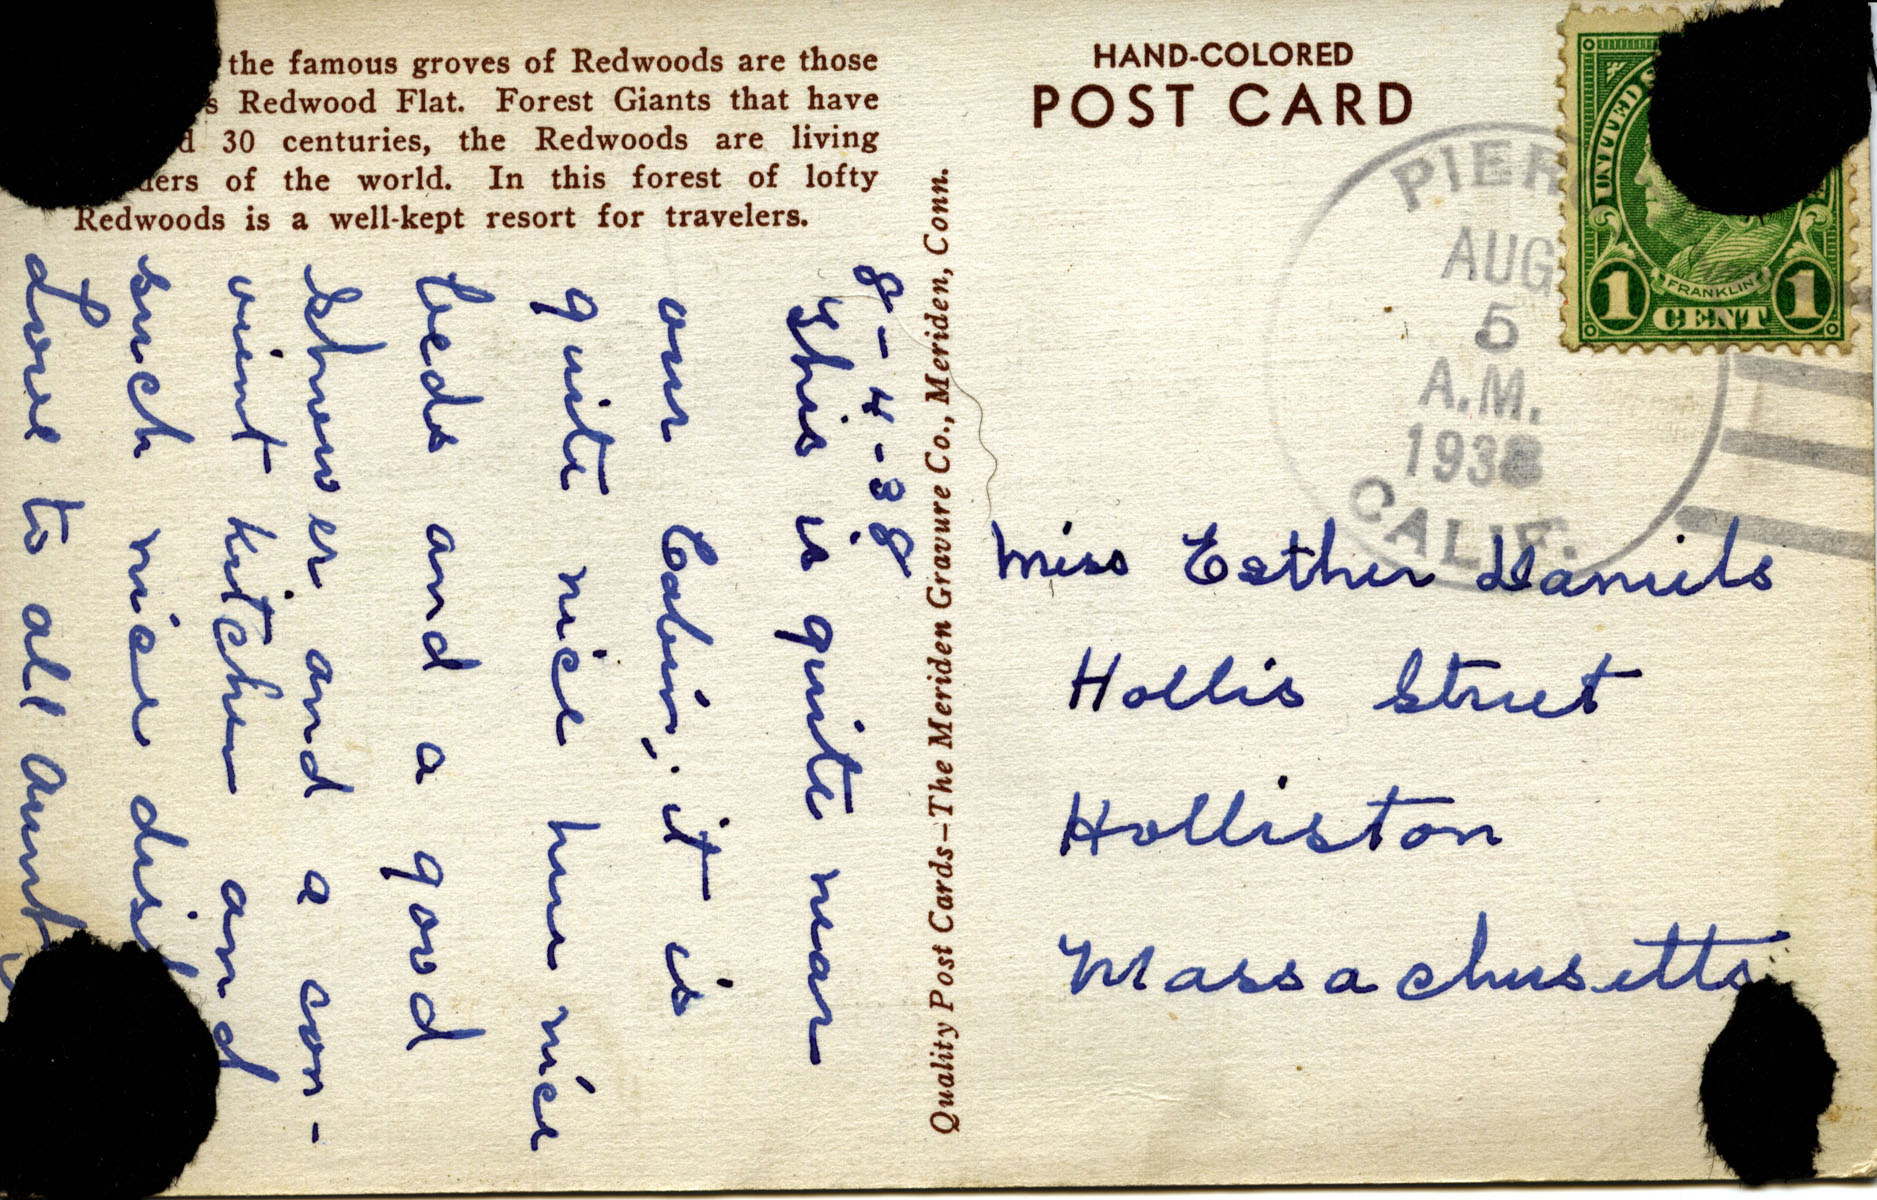 the famous groves of Redwoods are those
s Redwood Flat. Forest Giants that have
d 30 centuries, the Redwoods are living
ders of the world. In this forest of lofty
Redwoods is a well-kept resort for travelers.
8-4-38
This is quite near
our Cabin, it is
quite nice here nice
beds and a good
shower and a con-
vient kitchen and
such nice dish
Love to all Aunt
Quality Post Cards—The Meriden Gravure Co., Meriden, Conn.
HAND-COLORED
POST CARD
PIER
AUG
5
A.M.
1938
CALIF.
UNITED S
FRANKLIN
1 CENT 1
Miss Esther Daniels
Hollis Street
Holliston
Massachusetts